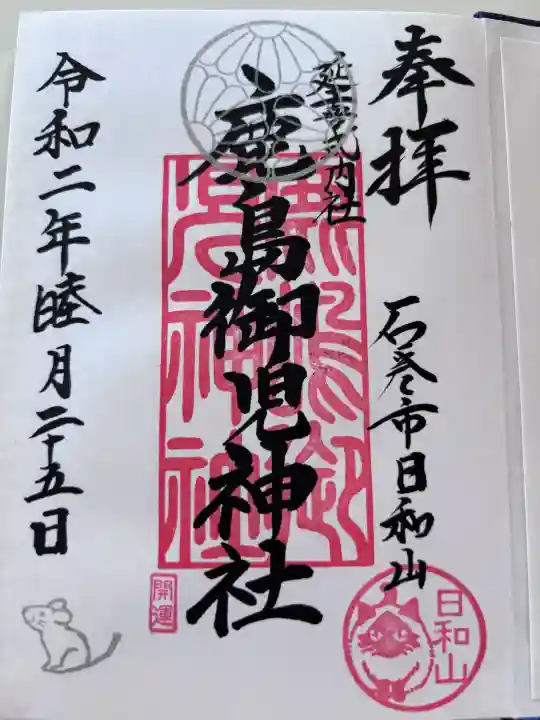 奉拝
延喜式内社
石巻市日和山
鹿島御児神社
令和二年睦月二十五日
鹿島御児神社
開運
日和山